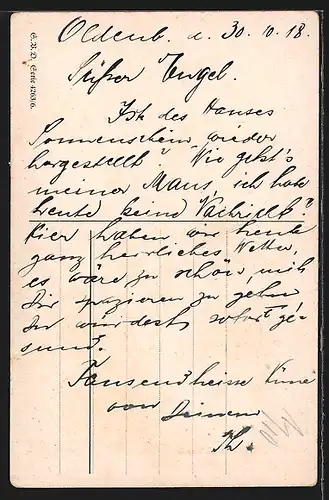 Oldenb. d. 30.10.18.
Süßer Engel.
Ist des Hauses
Sonnenschein wieder
hergestellt? Wie geht's
meiner Maus, ich habe
heute keine Nachricht?
Hier haben wir heute
ganz herrliches Wetter
es wäre zu schön, mit
Dir spazieren zu gehn
Du würdest sofort ge-
sund.
Tausend heisse Küsse
von Deinem
S.B.D. Serie 4263/6.